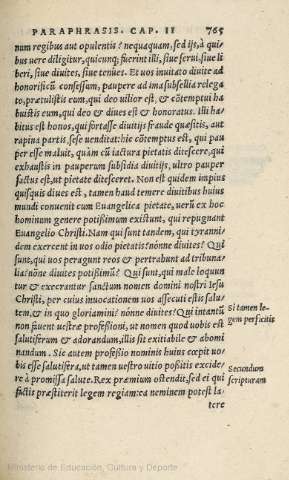 PARAPHRASIS. CAP. II 765
num regibus aut opulentis? nequaquam, sed ijs, à qui-
bus uere diligitur, quicunq; fuerint illi, siue serui, siue li
beri, siue diuites, siue tenues. Et uos inuitato diuite ad
honorificū consessum, paupere ad ima subsellia relega-
to, prætulistis eum, qui deo uilior est, & cōtemptui ha
buistis eum, qui deo & diues est & honoratus. Illi ha/
bitus est honos, qui fortasse diuitijs fraude quæsitis, aut
rapina partis, sese uenditat: hic cōtemptus est, qui pau
per esse maluit, quàm cū iactura pietatis ditescere, qui
exhaustis in pauperum subsidia diuitijs, ultro pauper
factus est, ut pietate ditesceret. Non est quidem impius
quisquis diues est, tamen haud temere diuitibus huius
mundi conuenit cum Euangelica pietate, uerū ex hoc
hominum genere potißimum existunt, qui repugnant
Euangelio Christi. Nam qui sunt tandem, qui tyranni/
dem exercent in uos odio pietatis? nónne diuites? Qui
sunt, qui uos pergunt reos & pertrabunt ad tribuna/
lia? nōne diuites potißimū? Qui sunt, qui male loquun
tur & execrantur sanctum nomen domini nostri Iesu
Christi, per cuius inuocationem uos assecuti estis salu/
tem, & in quo gloriamini? nónne diuites? Qui intantū
non fauent uestræ professioni, ut nomen quod uobis est
salutiferum & adorandum, illis sit exitiabile & abomi
nandum. Sic autem professio nominis huius cœpit uo-
bis esse salutifera, ut tamen uestro uitio poßitis excide/
re à promissa salute. Rex præmium ostendit, sed ei qui
factis præstiterit legem regiam: ea neminem potest la/
tere
Si tamen le-
gem perficitis
Secundum
scripturam
Ministerio de Educación, Cultura y Deporte